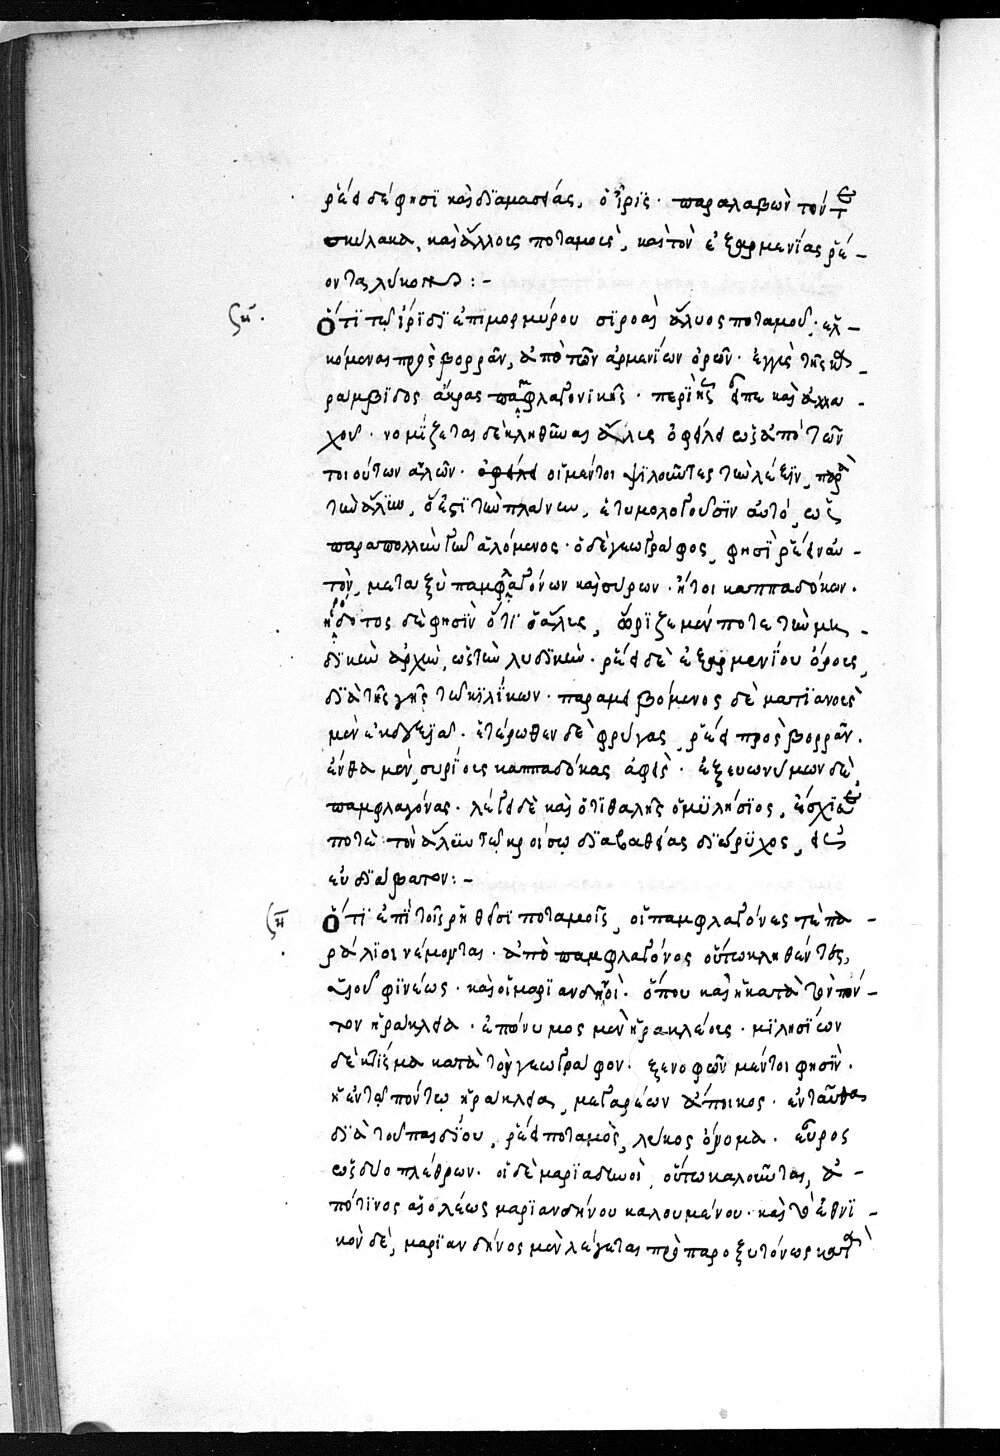 ῥεῖ δέ φησι καὶ δι' ἀμασείας, ὁ ἶρις· παραλαβὼν τόν τε
σκύλακα, καὶ ἄλλους ποταμοὺς, καὶ τὸν ἐξ ἀρμενίας ῥέ-
οντα λύκον:-
ὅτι τῷ ἴριδι ἐπιμορμύρουσι ῥοαὶ ἅλυος ποταμοῦ· ἑλ-
κόμεναι πρὸς βορρᾶν, ἀπὸ τῶν ἀρμενίων ὀρῶν· ἐγγὺς τῆς κα-
ράμβιδος ἄκρας παφλαγονικῆς· περὶ ἧς εἶπε καὶ ἀλλα-
χοῦ· νομίζεται δὲ κληθῆναι ἅλυς ὁ ἁλῶν·
οἱ μέντοι ψιλοῦντες τὴν λέξιν, παρὰ
τὴν ἄλην, ὅ ἐστι τὴν πλάνην, ἐτυμολογοῦσιν αὐτό, ὡς
παρὰ πολλὴν γῆν ἀλόμενος· ὁ δὲ γεωγράφος, φησὶ ῥεῖν αὐ-
τὸν, μεταξὺ παμφλαγόνων καὶ σύρων· ἤτοι καππαδόκων·
ἡρόδοτος δὲ φησὶν ὅτι ὁ ἅλυς, ὥριζε μέν ποτε τὴν μη-
δικὴν ἀρχὴν, ὡς τὴν λυδικήν· ῥεῖ δὲ ἐξ ἀρμενίου ὄρους,
διὰ τῆς γῆς τῶν κιλίκων· παραμειβόμενος δὲ ματιανοὺς
μὲν ἐκ δεξιᾶς· ἑτέρωθεν δὲ φρύγας, ῥεῖ πρὸς βορρᾶν·
ἔνθα μὲν συρίους καππαδόκας ἀφεὶς· ἐξ εὐωνύμων δὲ
παμφλαγόνας· λέγει δὲ καὶ ὅτι θαλῆς ὁ μιλήσιος, ἔσχισέ
ποτε τὸν ἅλυν τῷ κροίσῳ διὰ βαθείας διώρυχος, εἰς
εὐδιάβατον:-
ὅτι ἐπὶ τοῖς ῥηθεῖσι ποταμοῖς, οἱ παμφλαγόνες τὲ πα-
ράλιοι νέμονται· ἀπὸ παμφλαγόνος οὕτω κληθέντες,
υἱοῦ φινέως· καὶ οἱ μαριανδηνοὶ· ὅπου καὶ ἡ κατὰ τὸν πόν-
τον ἡράκλεια· ἐπώνυμος μὲν ἡρακλέους· μιλησίων
δὲ κτίσμα κατὰ τὸν γεωγράφον· ξενοφῶν μέντοι φησὶν·
ἡ ἐν τῷ πόντῳ ἡράκλεια, μεγαρέων ἄποικος· ἐνταῦθα
διὰ τοῦ πεδίου, ῥεῖ ποταμὸς, λύκος ὄνομα· εὖρος
ὡς δύο πλέθρων· οἱ δὲ μαριανδυνοὶ, οὕτω καλοῦνται, ἀ-
πό τινος αἰολέως μαριανδήνου καλουμένου· καὶ τὸ ἐθνι-
κὸν δὲ, μαριανδήνος μὲν λέγεται προπαροξυτόνως κατὰ